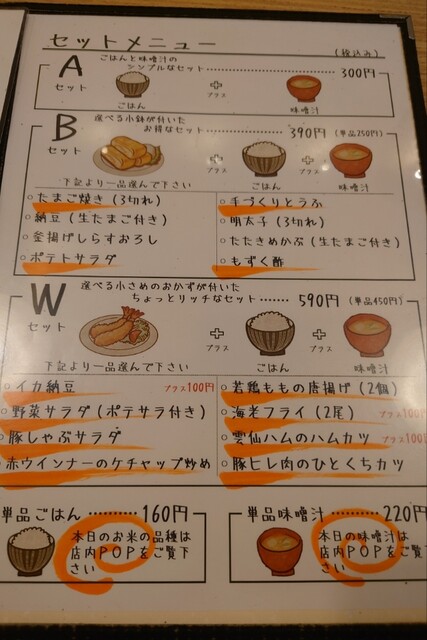 セットメニュー
(税込み)
A
セット
ごはんと味噌汁の
シンプルなセット……………………300円
ごはん
プラス
味噌汁
B
セット
選べる小鉢が付いた
お得なセット……………………390円 (単品250円)
下記より一品選んで下さい
プラス
ごはん
プラス
味噌汁
○たまご焼き (3切れ)
○納豆 (生たまご付き)
○釜揚げしらすおろし
○ポテトサラダ
○手づくりとうふ
○明太子 (3切れ)
○たたきめかぶ (生たまご付き)
○もずく酢
W
セット
選べる小さめのおかずが付いた
ちょっとリッチなセット………590円 (単品450円)
下記より一品選んで下さい
プラス
ごはん
プラス
味噌汁
○イカ納豆 プラス100円
○野菜サラダ (ポテサラ付き)
○豚しゃぶサラダ
○赤ウインナーのケチャップ炒め
○若鶏ももの唐揚げ (2個)
○海老フライ (2尾) プラス100円
○雲仙ハムのハムカツ プラス100円
○豚ヒレ肉のひとくちカツ
単品ごはん………160円
本日のお米の品種は
店内POPをご覧下
さい
単品味噌汁…………220円
本日の味噌汁は
店内POPをご覧下
さい